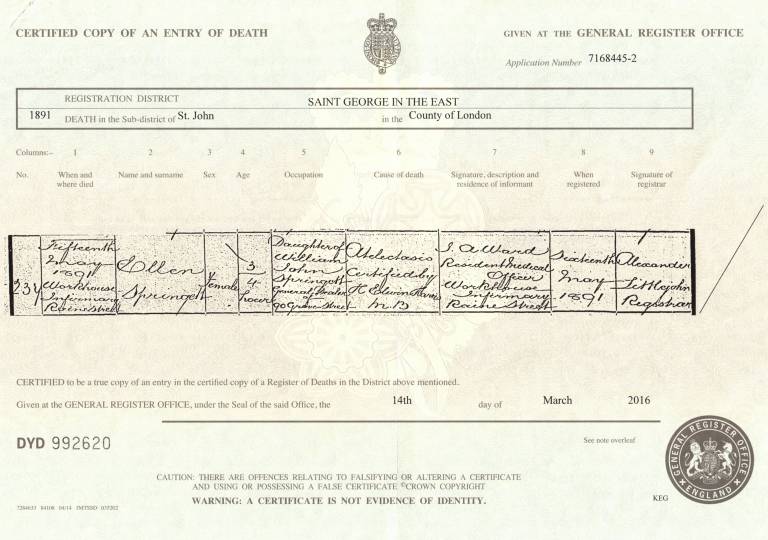 CERTIFIED COPY OF AN ENTRY OF DEATH
GIVEN AT THE GENERAL REGISTER OFFICE
Application Number 7168445-2
REGISTRATION DISTRICT SAINT GEORGE IN THE EAST
1891 DEATH in the Sub-district of St. John in the County of London
Columns:– 1 2 3 4 5 6 7 8 9
No. When and where died Name and surname Sex Age Occupation Cause of death Signature, description and residence of informant When registered Signature of registrar
Fifteenth
May
1891
Workhouse
Infirmary
Raine Street
Ellen
Springett
Female
3/4
hours
Daughter of
William
John
Springett
General Dealer
of
90 Grove Street
Atelectasis
Certified by
H Edwin
M B
J. A Ward
Resident Medical
Officer
Workhouse
Infirmary
Raine Street
Sixteenth
May
1891
Alexander
Littlejohn
Registrar
CERTIFIED to be a true copy of an entry in the certified copy of a Register of Deaths in the District above mentioned.
Given at the GENERAL REGISTER OFFICE, under the Seal of the said Office, the 14th day of March 2016
DYD 992620
See note overleaf
CAUTION: THERE ARE OFFENCES RELATING TO FALSIFYING OR ALTERING A CERTIFICATE
AND USING OR POSSESSING A FALSE CERTIFICATE ©CROWN COPYRIGHT
WARNING: A CERTIFICATE IS NOT EVIDENCE OF IDENTITY.
KEG
GENERAL REGISTER OFFICE
ENGLAND